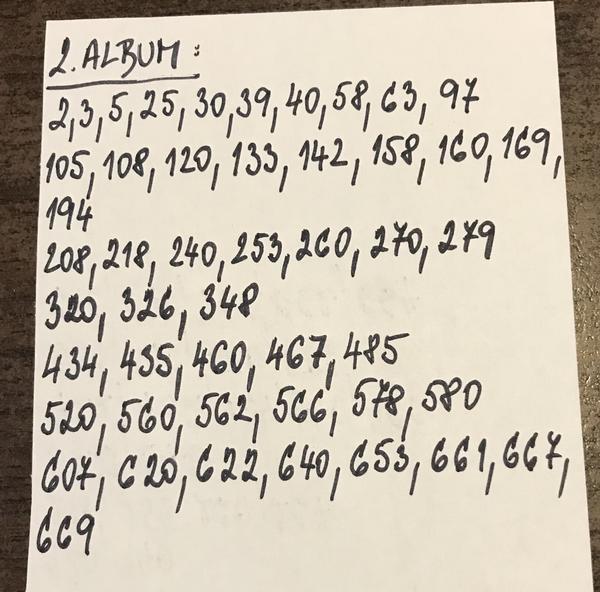 2. ALBUM:
2, 3, 5, 25, 30, 39, 40, 58, 63, 97
105, 108, 120, 133, 142, 158, 160, 169,
194
208, 218, 240, 253, 260, 270, 279
320, 326, 348
434, 435, 460, 467, 485
520, 560, 562, 566, 578, 580
607, 620, 622, 640, 653, 661, 667,
669